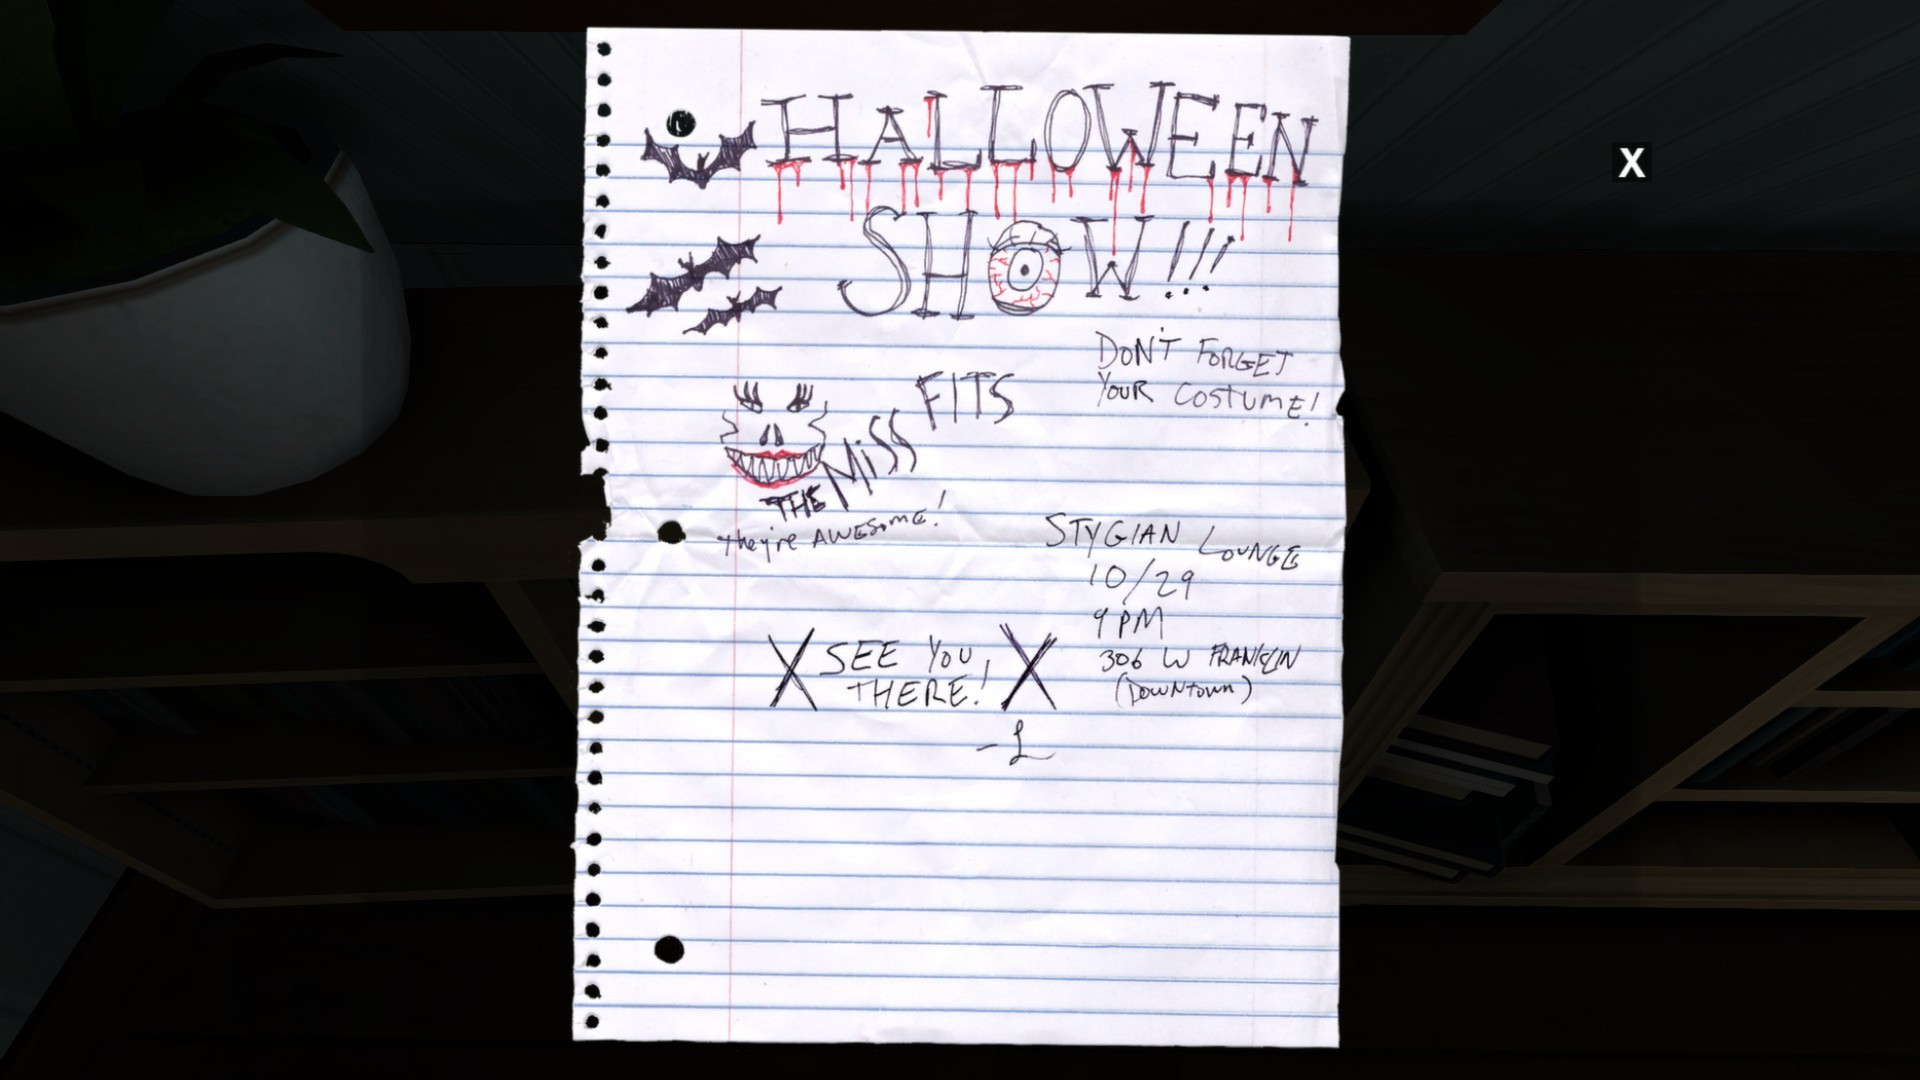 HALLOWEEN
SHOW!!!
DON'T FORGET
YOUR COSTUME!
THE MISS FITS
they're AWESOME!
STYGIAN LOUNGE
10/29
9 PM
306 W FRANKLIN
(DOWNTOWN)
X SEE YOU X
THERE!
-L
X